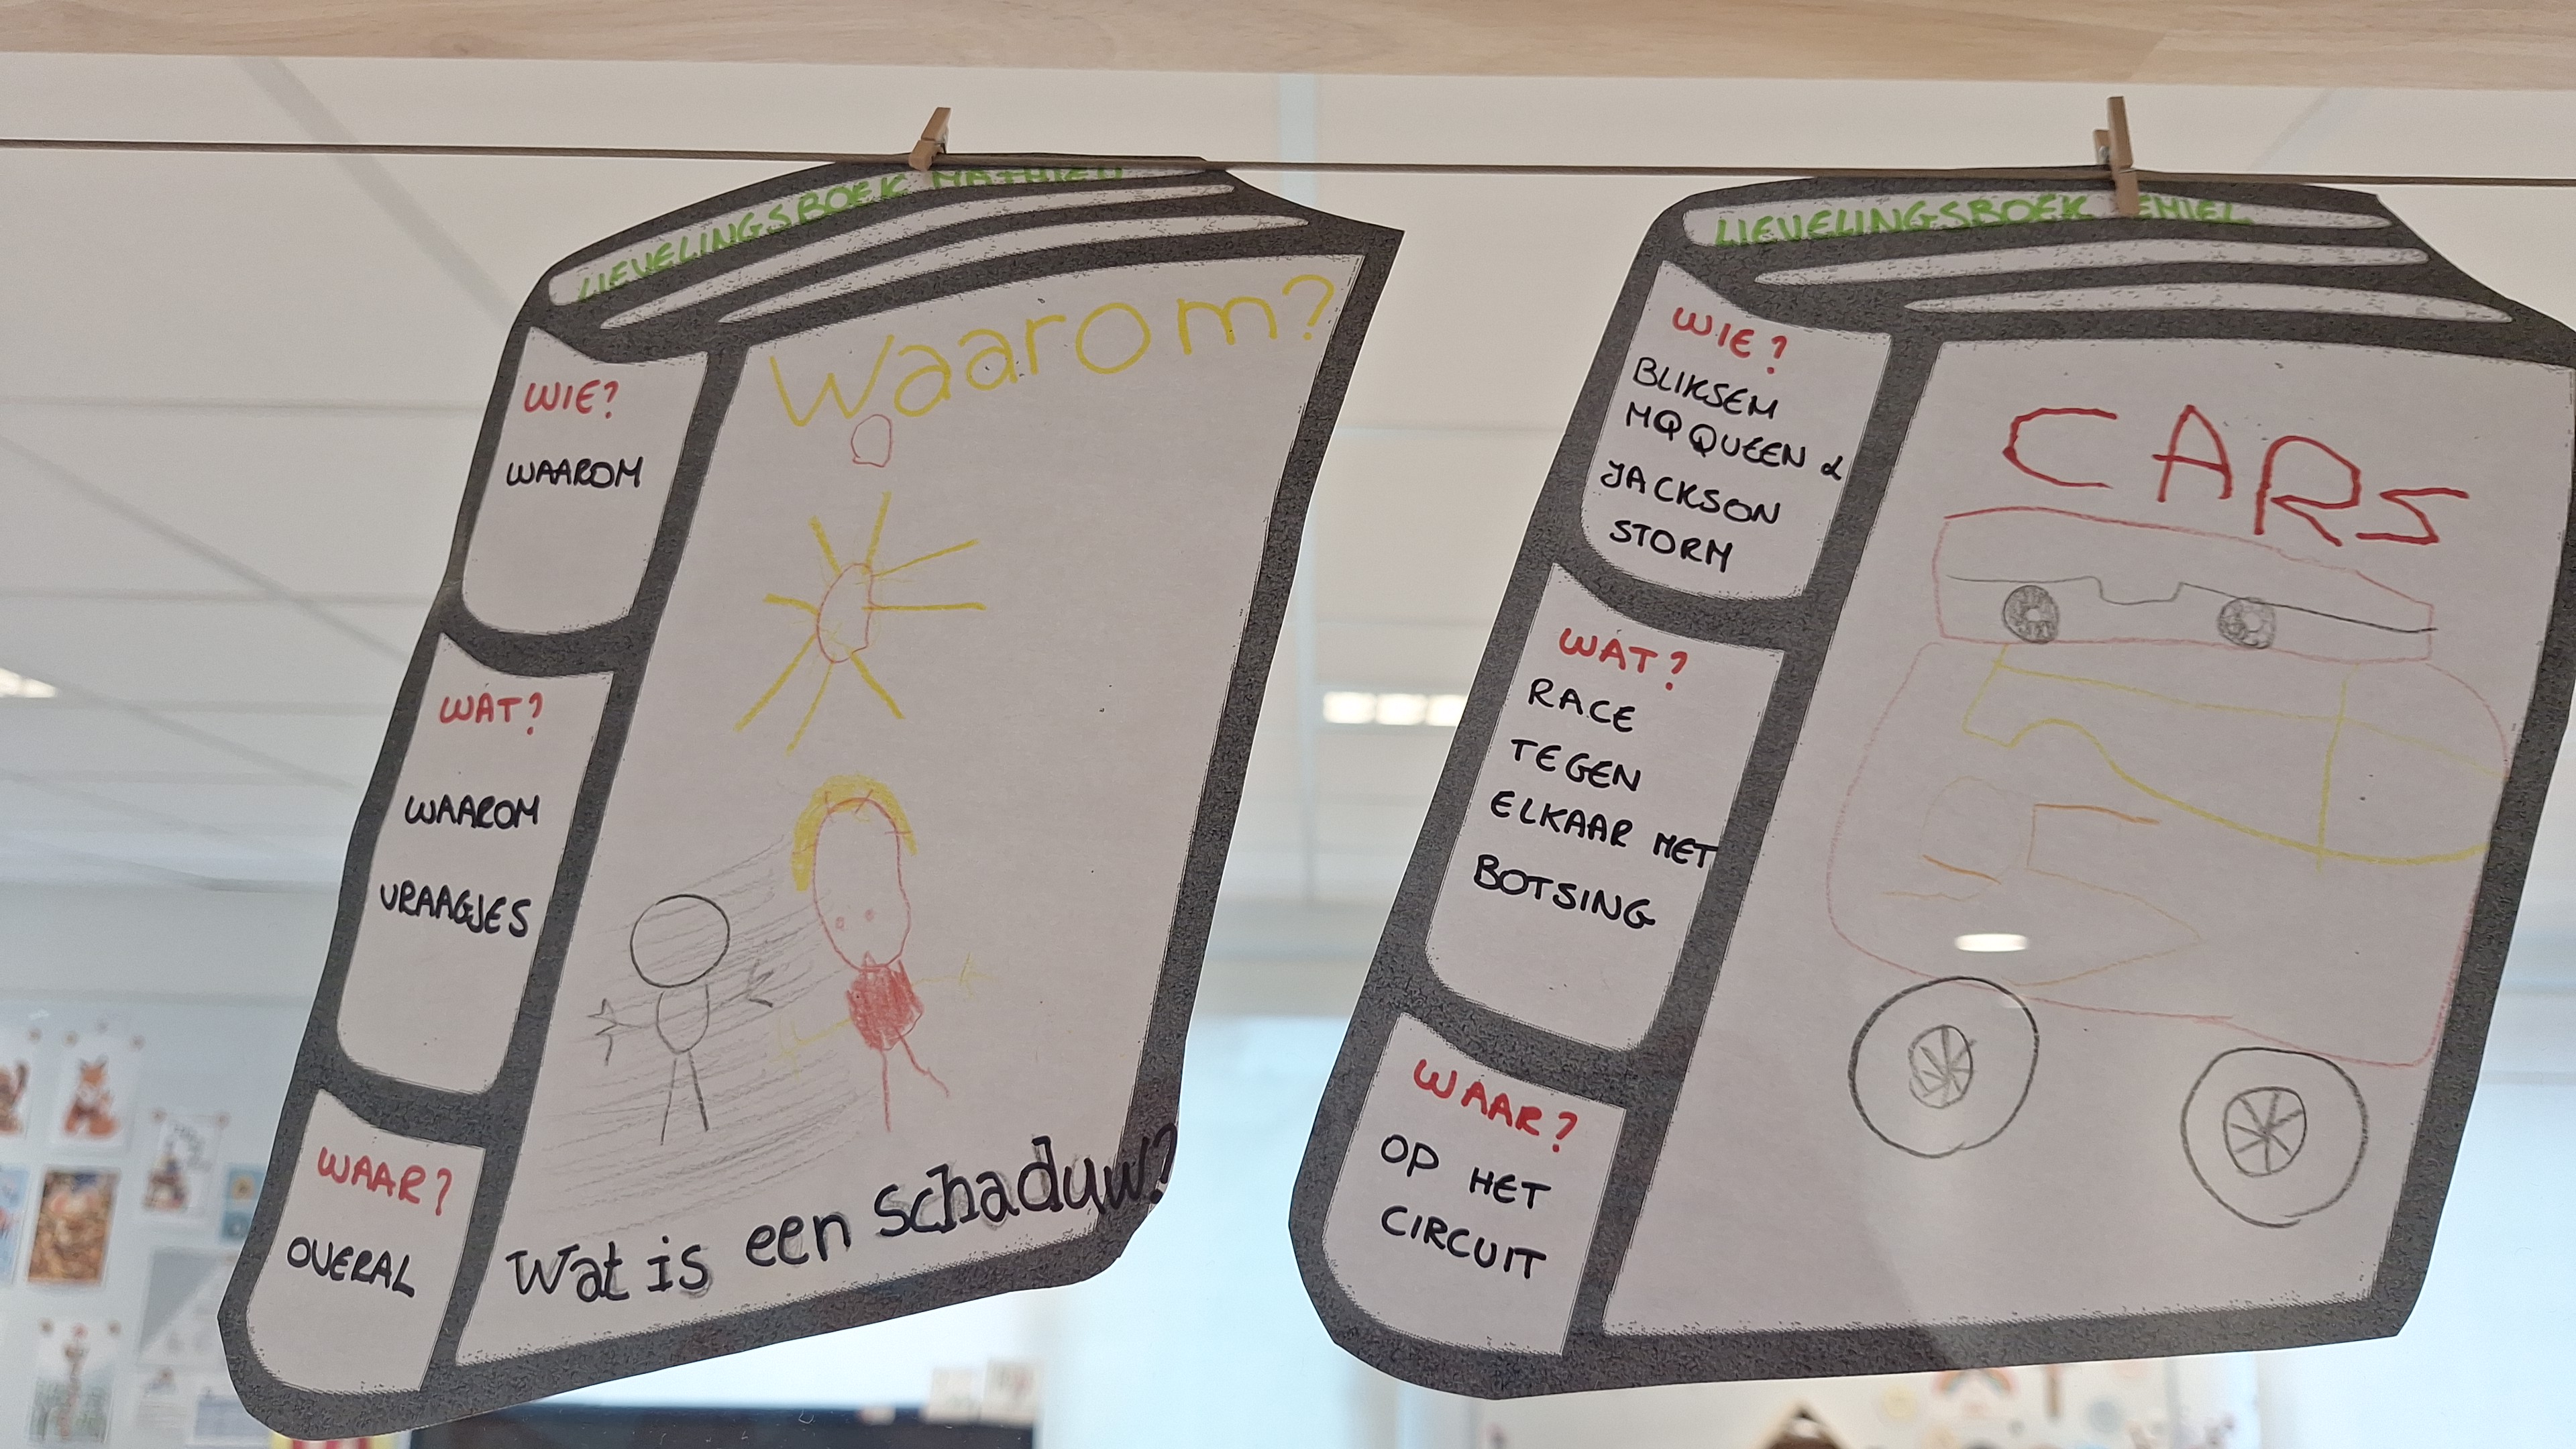 LIEVELINGSBOEK MATHIEU
Waarom?
WIE?
WAAROM
WAT?
WAAROM
VRAAGJES
WAAR?
OVERAL
Wat is een schaduw?
LIEVELINGSBOEK EMIEL
WIE?
BLIKSEM
MQQUEEN &
JACKSON
STORM
WAT?
RACE
TEGEN
ELKAAR MET
BOTSING
WAAR?
OP HET
CIRCUIT
CARS